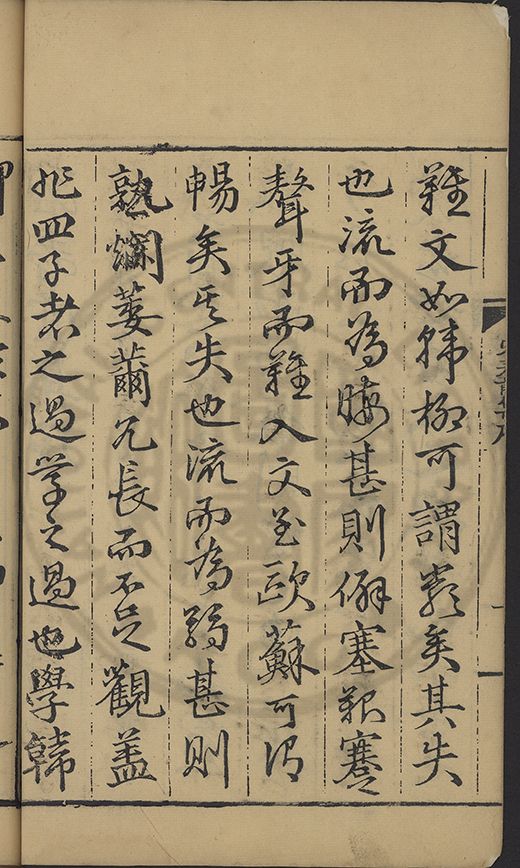 難文如韓柳可謂嚴矣其失
也流而為晦甚則僻塞艱蹇
聱牙而難入文至歐蘇可謂
暢矣其失也流而為弱甚則
熟爛萎薾冗長而不足觀盖
非四子者之過學之過也學韓